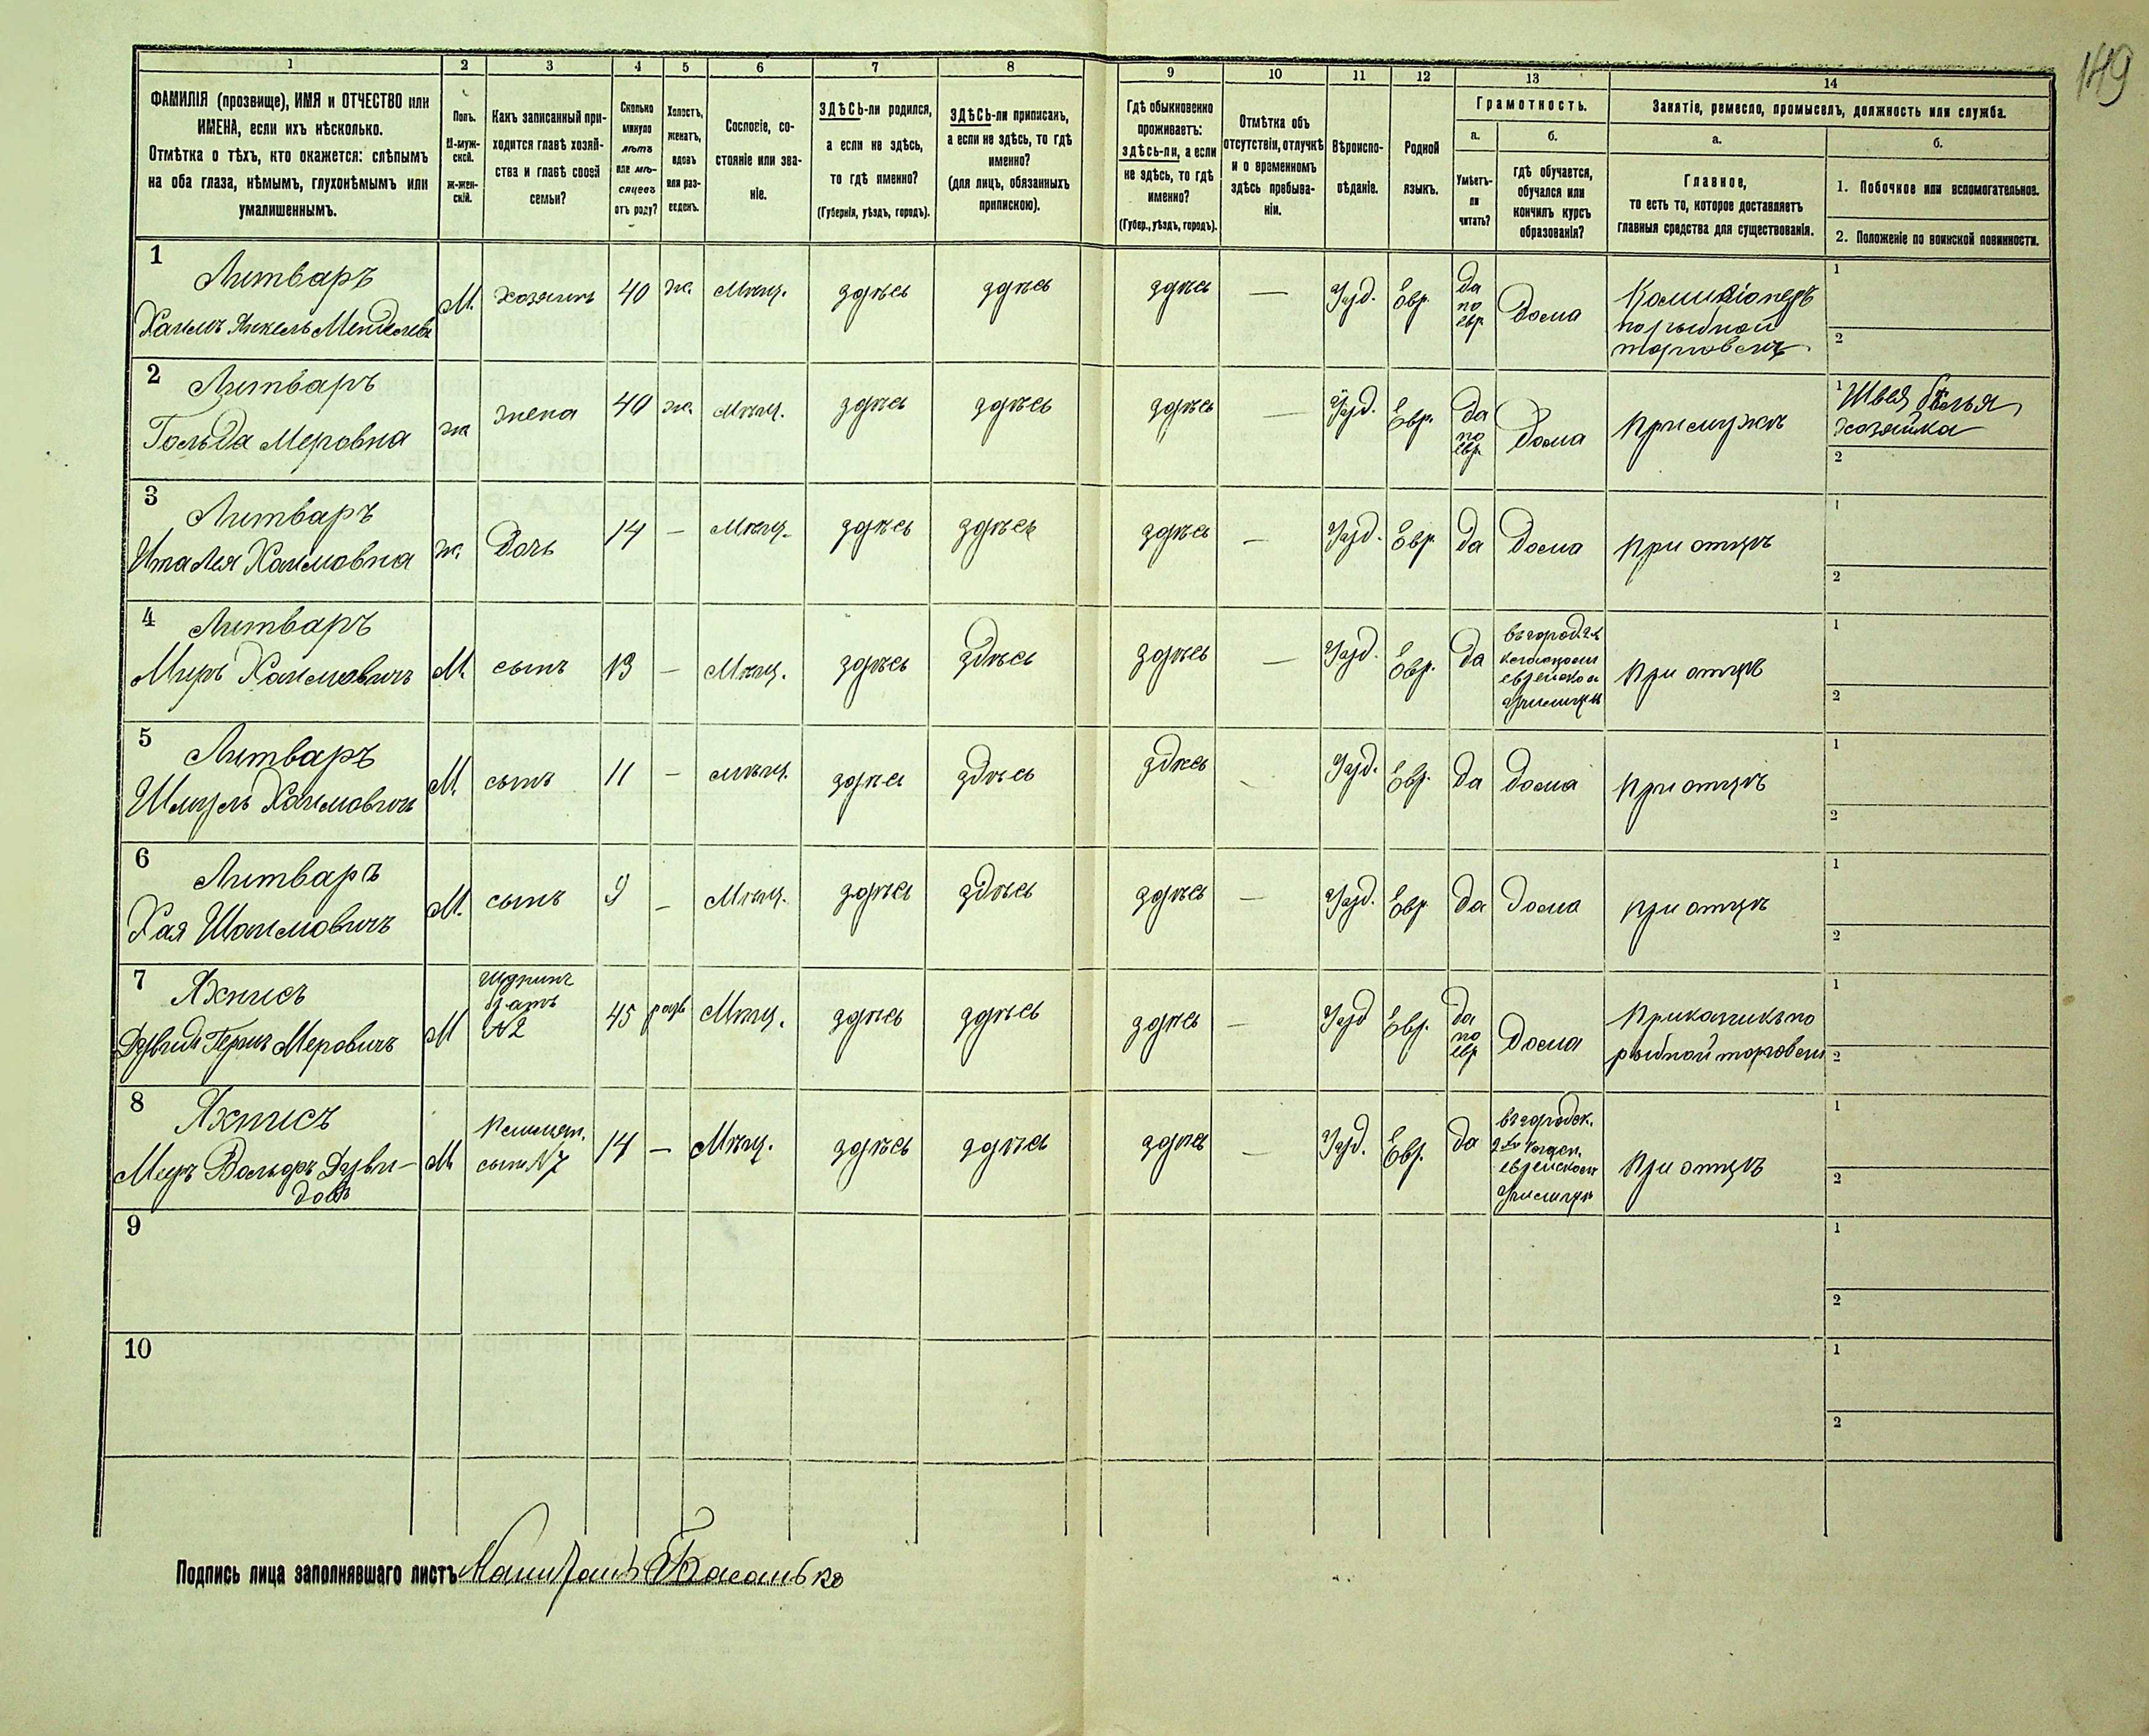 149
1 2 3 4 5 6 7 8 9 10 11 12 13 14
ФАМИЛІЯ (прозвище), ИМЯ и ОТЧЕСТВО или
ИМЕНА, если ихъ нѣсколько.
Отмѣтка о тѣхъ, кто окажется: слѣпымъ
на оба глаза, нѣмымъ, глухонѣмымъ или
умалишеннымъ.
Полъ.
М-муж-
ской.
ж-жен-
скій.
Какъ записанный при-
ходится главѣ хозяй-
ства и главѣ своей
семьи?
Сколько
минуло
лѣтъ
или мѣ-
сяцевъ
отъ роду?
Холостъ,
женатъ,
вдовъ
или раз-
веденъ.
Сословіе, со-
стояніе или зва-
ніе.
ЗДѢСЬ-ли родился,
а если не здѣсь,
то гдѣ именно?
(Губернія, уѣздъ, городъ).
ЗДѢСЬ-ли приписанъ,
а если не здѣсь, то гдѣ
именно?
(для лицъ, обязанныхъ
припискою).
Гдѣ обыкновенно
проживаетъ:
здѣсь-ли, а если
не здѣсь, то гдѣ
именно?
(Губер., уѣздъ, городъ).
Отмѣтка объ
отсутствіи, отлучкѣ
и о временномъ
здѣсь пребыва-
ніи.
Вѣроиспо-
вѣданіе.
Родной
языкъ.
Грамотность.
а.
Умѣетъ-
ли
читать?
б.
гдѣ обучается,
обучался или
кончилъ курсъ
образованія?
Занятіе, ремесло, промыселъ, должность или служба.
а.
Главное,
то есть то, которое доставляетъ
главныя средства для существованія.
б.
1. Побочное или вспомогательное.
2. Положеніе по воинской повинности.
1
Литваръ
Хаимъ Янкель Менделевъ
М.
хозяинъ
40
ж.
Мѣщ.
здѣсь
здѣсь
здѣсь
—
Іуд.
Евр.
да
по
евр
Дома
Комиссіонеръ
по рыбной
торговлѣ
1
2
2
Литваръ
Гольда Меровна
ж
жена
40
ж.
Мѣщ.
здѣсь
здѣсь
здѣсь
—
Іуд.
Евр.
да
по
евр
Дома
при мужѣ
1 Швея бѣлья
хозяйка
2
3
Литваръ
Ита Лея Хаимовна
ж.
Дочь
14
—
Мѣщ.
здѣсь
здѣсь
здѣсь
—
Іуд.
Евр
да
Дома
при отцѣ
1
2
4
Литваръ
Меръ Хаимовичъ
М.
сынъ
13
—
Мѣщ.
здѣсь
здѣсь
здѣсь
—
Іуд.
Евр.
да
въ город. 2-х
еврейском
училищѣ
при отцѣ
1
2
5
Литваръ
Шмуль Хаимовичъ
М.
сынъ
11
—
мѣщ.
здѣсь
здѣсь
здѣсь
Іуд.
Евр.
да
дома
при отцѣ
1
2
6
Литваръ
Хая Шаимовичъ
М.
сынъ
9
—
Мѣщ.
здѣсь
здѣсь
здѣсь
—
Іуд.
Евр
да
дома
при отцѣ
1
2
7
Яхнисъ
Дувидъ Гершъ Меровичъ
М
Шуринъ
братъ
№2
45
разв
Мѣщ.
здѣсь
здѣсь
здѣсь
—
Іуд
Евр.
да
по
евр
Дома
Прикащикъ по
рыбной торговли
1
2
8
Яхнисъ
Меръ Вольфъ Дуви-
довъ
М
Племян.
сынъ №7
14
—
Мѣщ.
здѣсь
здѣсь
здѣсь
—
Іуд.
Евр.
да
въ городск.
еврейском
училищѣ
при отцѣ
1
2
9
1
2
10
1
2
Подпись лица заполнявшаго листъ